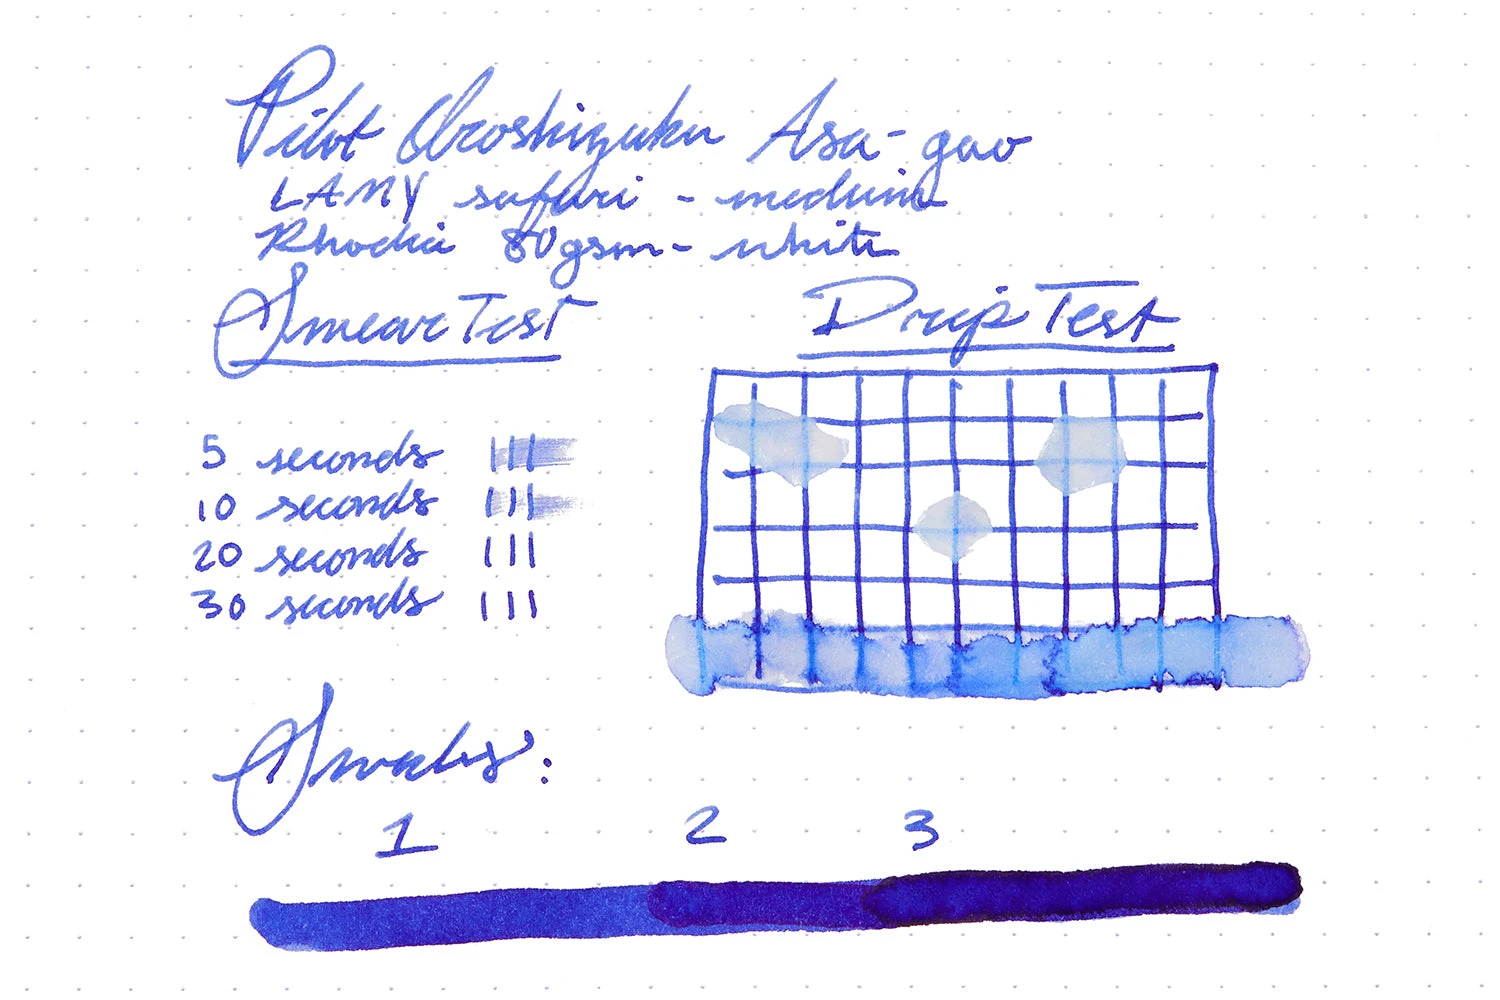 Pilot Iroshizuku Asa-gao
LAMY safari - medium
Rhodia 80gsm - white
Smear Test
Drip Test
5 seconds
10 seconds
20 seconds
30 seconds
Swabs:
1 2 3